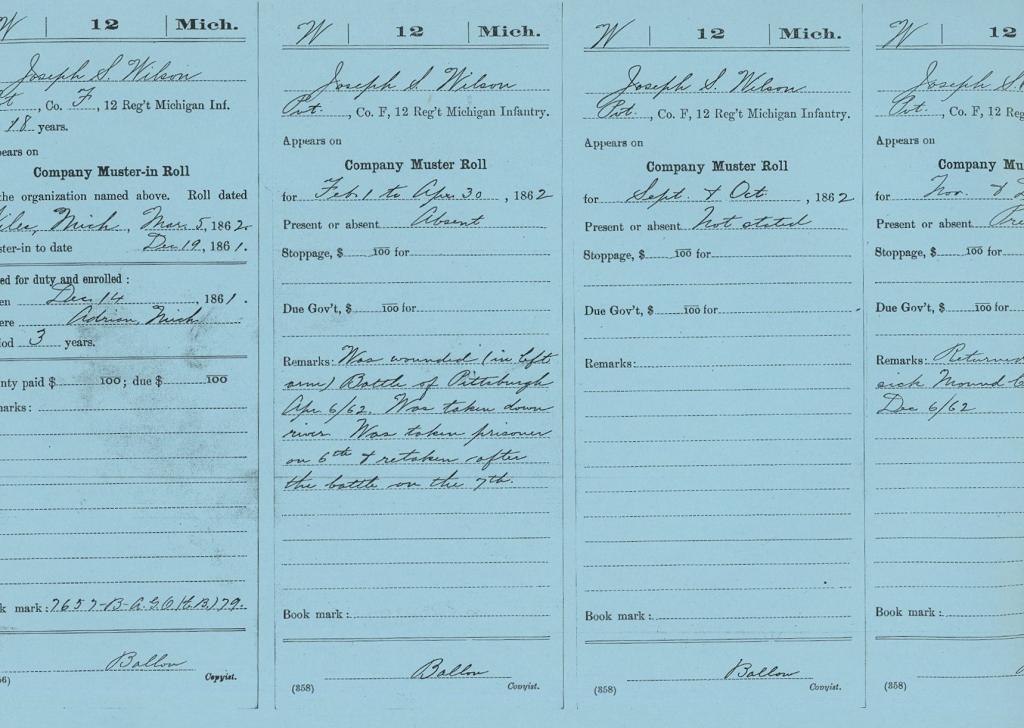 W | 12 | Mich.
Joseph S. Wilson
, Co. F, 12 Reg't Michigan Inf.
18 years.
pears on
Company Muster-in Roll
the organization named above. Roll dated
iles, Mich., Mar 5, 1862.
ster-in to date Dec 19, 1861.
ed for duty and enrolled:
en Dec 14, 1861.
ere Adrian, Mich
iod 3 years.
nty paid $ 100; due $ 100
marks:
k mark: 7657-B-A.G.O(E.B.)79.
Ballou
6) Copyist.
W | 12 | Mich.
Joseph S. Wilson
Pvt., Co. F, 12 Reg't Michigan Infantry.
Appears on
Company Muster Roll
for Feb 1 to Apr 30, 1862
Present or absent Absent
Stoppage, $ 100 for
Due Gov't, $ 100 for
Remarks: Was wounded (in left
arm) Battle of Pittsburgh
Apr 6/62. Was taken down
river. Was taken prisoner
on 6th & retaken after
the battle on the 7th.
Book mark:
Ballou
(358) Copyist.
W | 12 | Mich.
Joseph S. Wilson
Pvt., Co. F, 12 Reg't Michigan Infantry.
Appears on
Company Muster Roll
for Sept & Oct, 1862
Present or absent Not stated
Stoppage, $ 100 for
Due Gov't, $ 100 for
Remarks:
Book mark:
Ballou
(358) Copyist.
W | 12
Joseph S.
Pvt., Co. F, 12 Reg
Appears on
Company Mu
for Nov. &
Present or absent Pre
Stoppage, $ 100 for
Due Gov't, $ 100 for
Remarks: Returned
sick Mound C
Dec 6/62
Book mark:
(358)